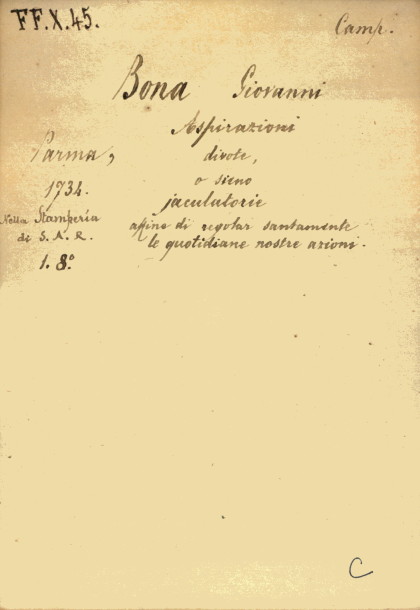 FF.X.45.
Camp.
Bona Giovanni
Aspirazioni
Parma,
divote,
1734.
o sieno
jaculatorie
Nella Stamperia
di S. A. R.
affine di regolar santamente
le quotidiane nostre azioni.
1. 8.°
C